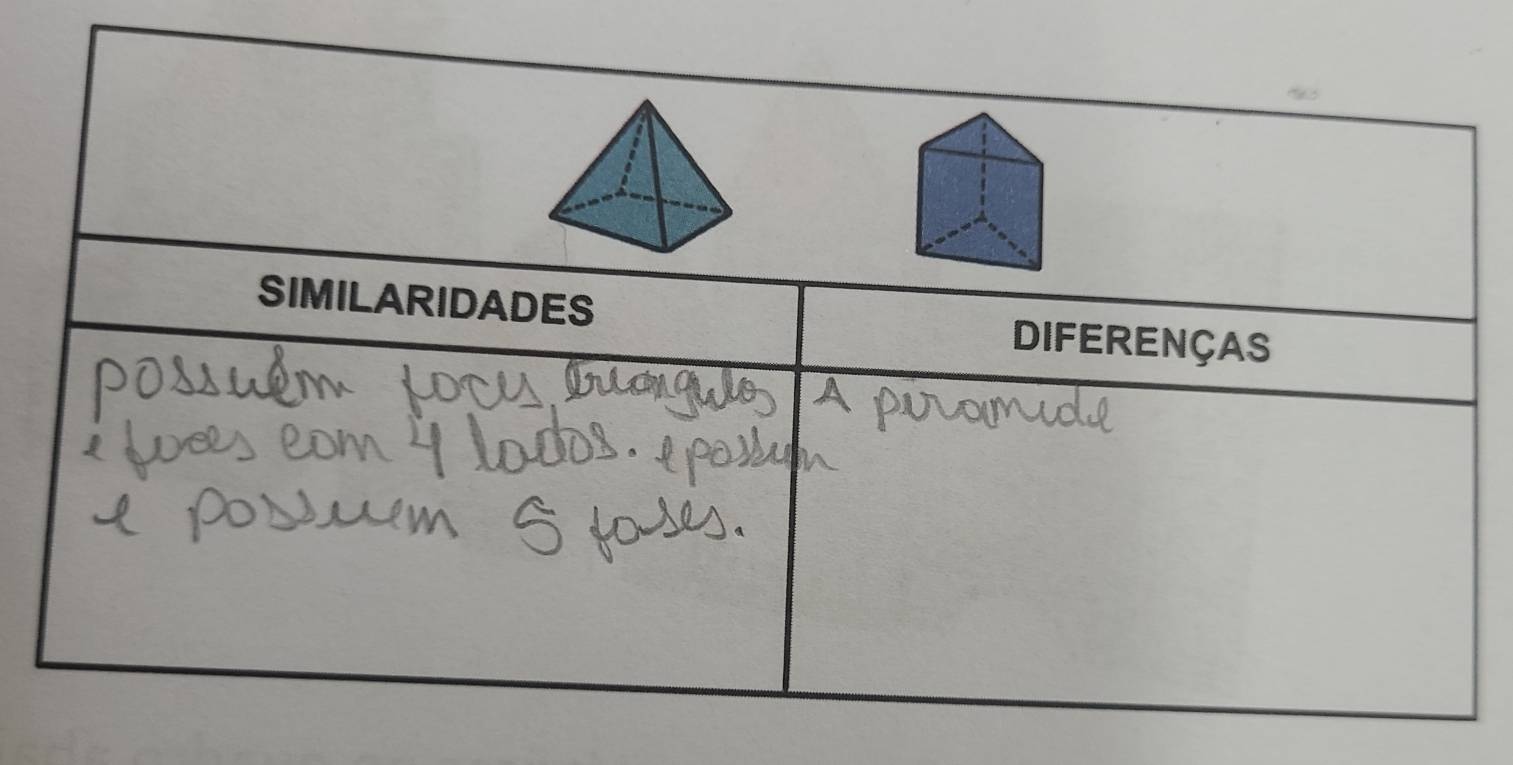 SIMILARIDADES
DIFERENÇAS
possuêm faces triangulos
e faces com 4 lados. e possum
e possuem 5 fases.
A piramide